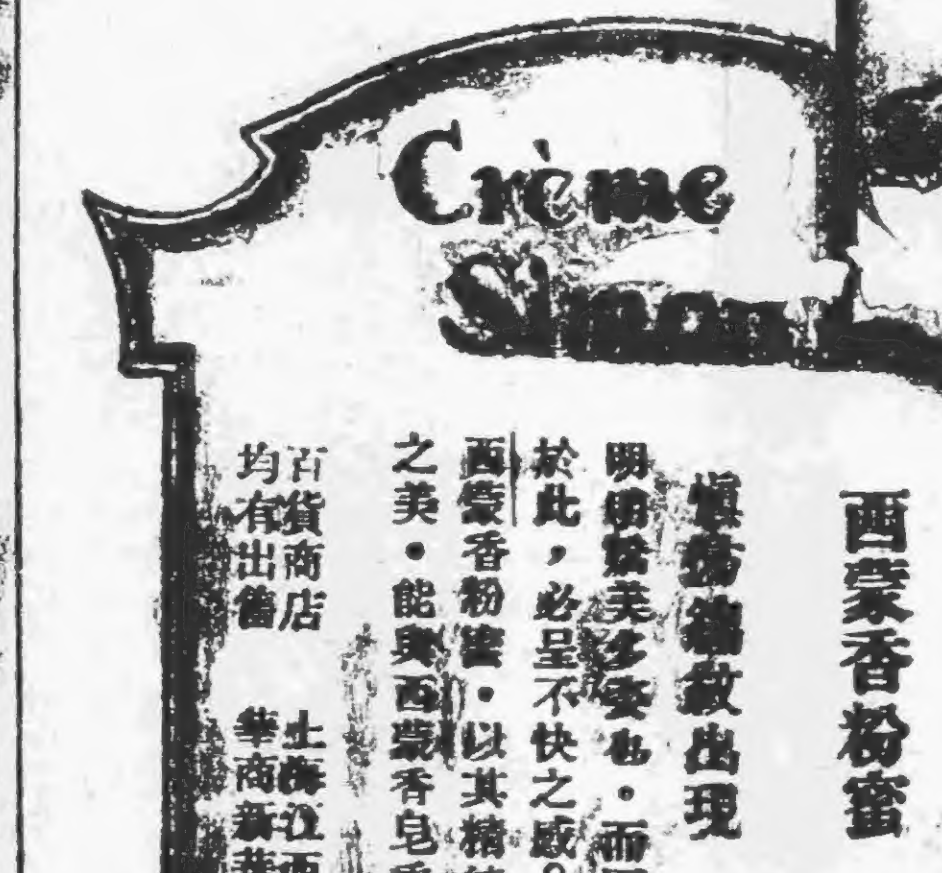 Crème
Simon
西蒙香粉蜜
出現
明明 美 也・而
於此，必呈不快之感。
西蒙香粉蜜・以其精
之美・能與西蒙香皂
百貨商店
均有出售
上海江西
華商新華